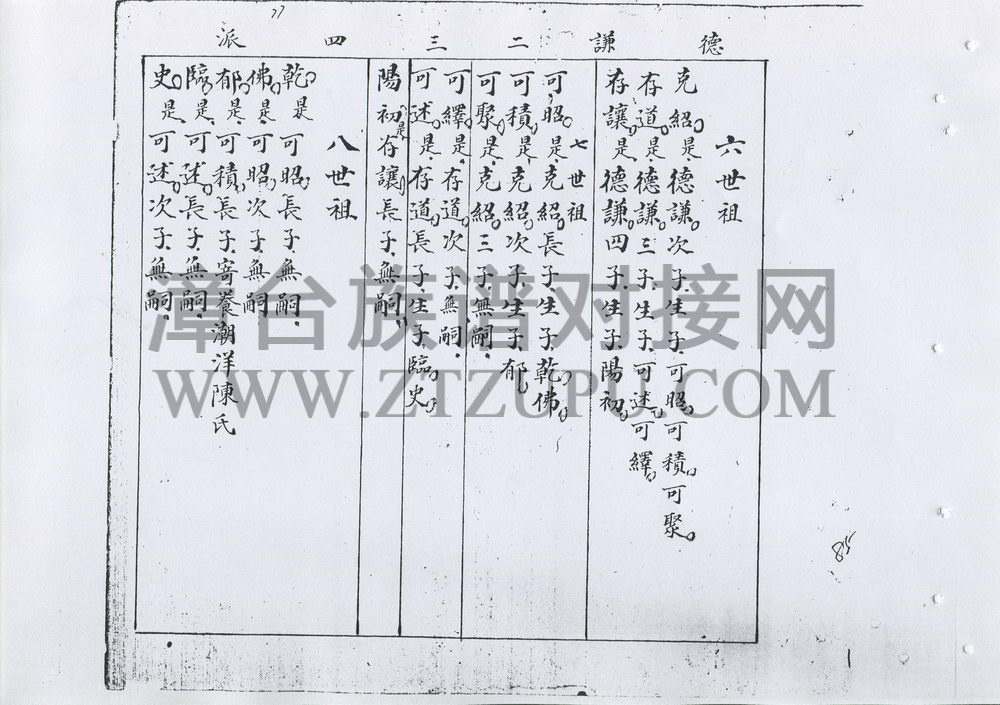 77
德謙二三四派
六世祖
克紹是德謙次子生子可昭可積可聚
存道是德謙三子生子可述可繹
存讓是德謙四子生子陽初
七世祖
可昭是克紹長子生子乾佛
可積是克紹次子生子郁
可聚是克紹三子無嗣
可繹是存道次子無嗣
可述是存道長子生子臨史
陽初是存讓長子無嗣
八世祖
乾是可昭長子無嗣
佛是可昭次子無嗣
郁是可積長子寄養潮洋陳氏
臨是可述長子無嗣
史是可述次子無嗣
漳台族谱对接网
WWW.ZTZUPU.COM